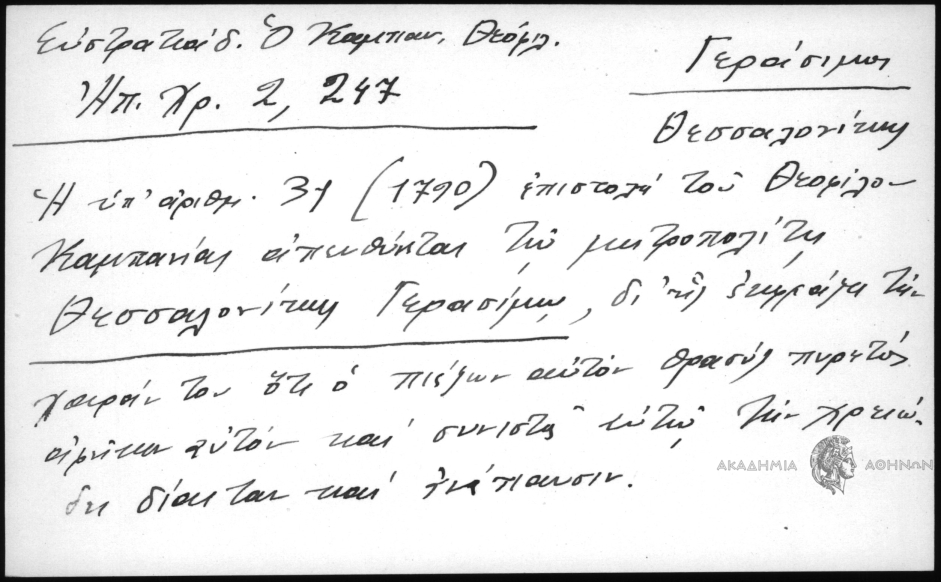 Εὐστρατιάδ. Ὁ Καμπαν. Θεόφιλ.
Ἠπ. Χρ. 2, 247
Γεράσιμος
Θεσσαλονίκης
Ἡ ὑπ' ἀριθμ. 31 (1790) ἐπιστολή τοῦ Θεοφίλου
Καμπανίας ἀπευθύνεται τῷ μητροπολίτῃ
Θεσσαλονίκης Γερασίμῳ, δι' ἧς ἐκφράζει τήν
χαράν του ὅτι ὁ πιέζων αὐτόν θρασύς πυρετός
ἀφῆκεν αὐτόν καί συνιστᾷ αὐτῷ τήν χρειώ-
δη δίαιταν καί ἀνάπαυσιν.
ΑΚΑΔΗΜΙΑ ΑΘΗΝΩΝ